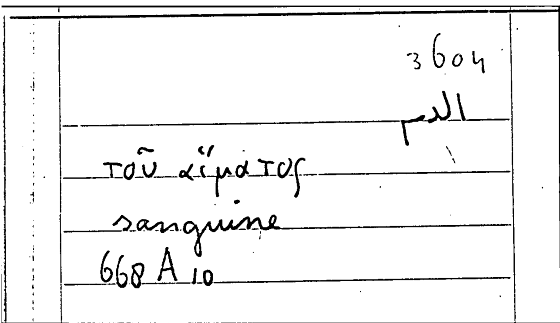 3604
الدم
τοῦ αἵματος
sanguine
668 A 10